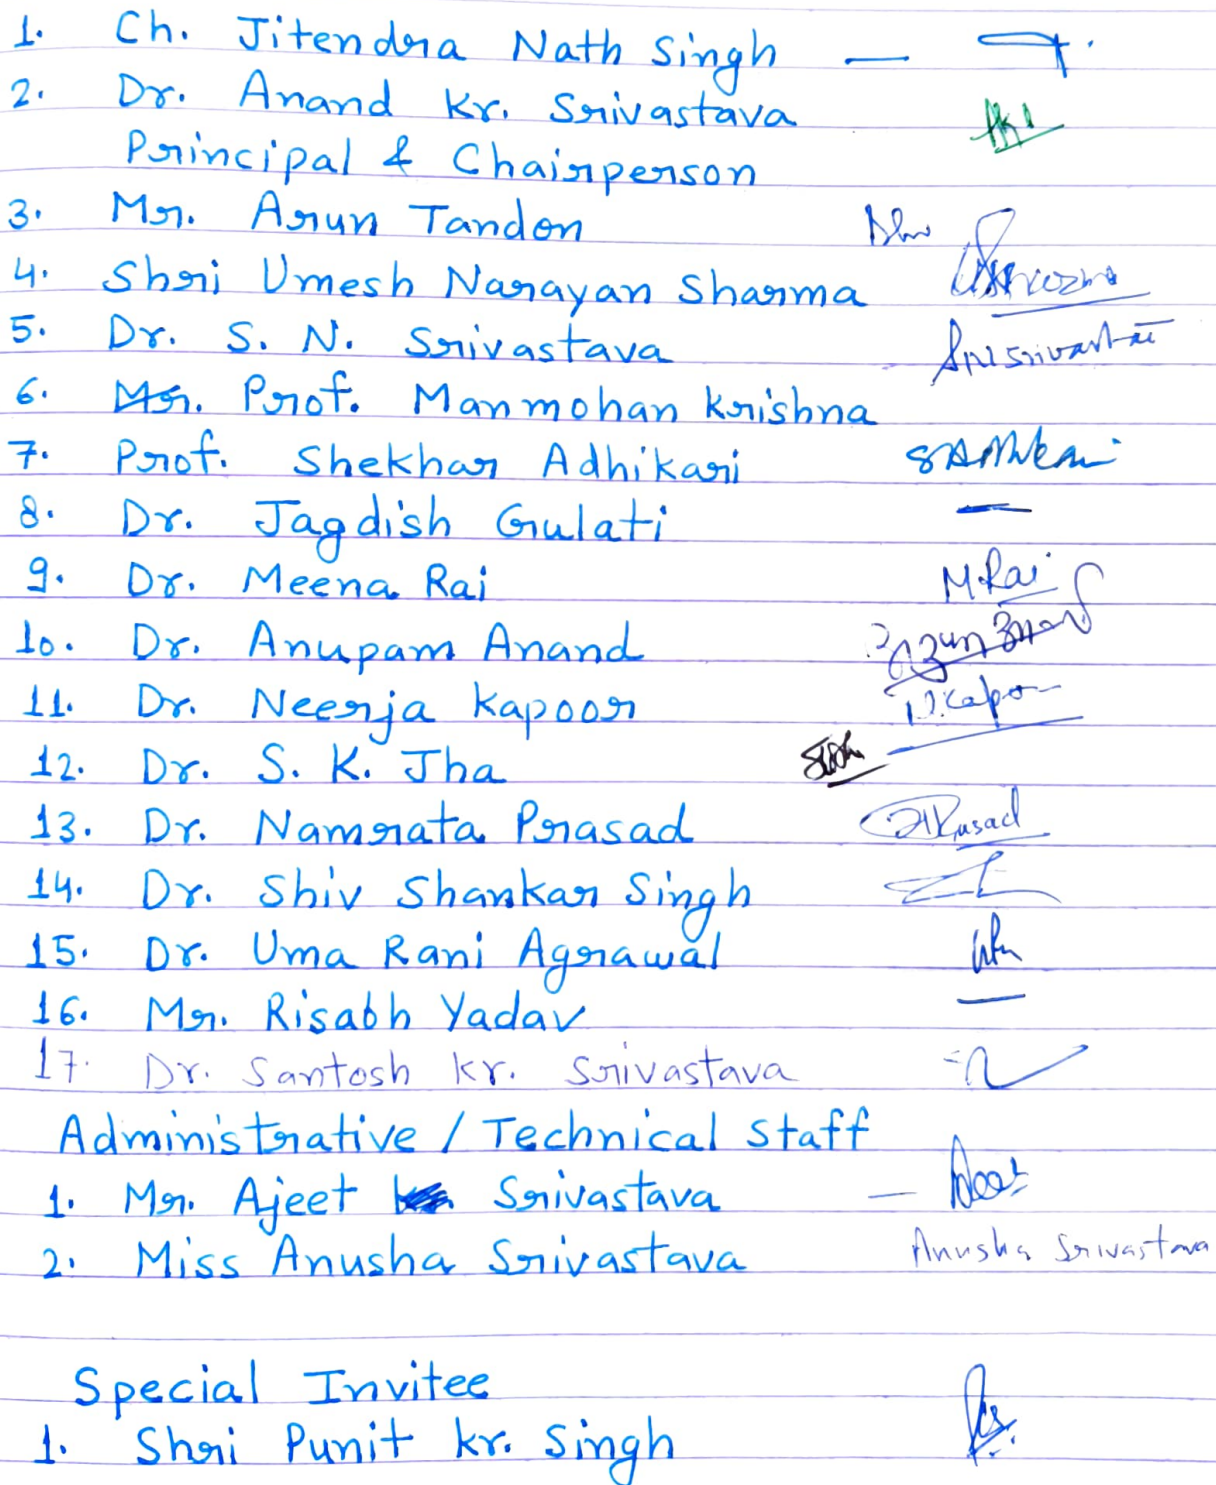 1. Ch. Jitendra Nath Singh —
2. Dr. Anand Kr. Srivastava
Principal & Chairperson
3. Mr. Arun Tandon
4. Shri Umesh Narayan Sharma
5. Dr. S. N. Srivastava SN Srivastava
6. Mr. Prof. Manmohan Krishna
7. Prof. Shekhar Adhikari SAdhikari
8. Dr. Jagdish Gulati —
9. Dr. Meena Rai M.Rai
10. Dr. Anupam Anand
11. Dr. Neerja Kapoor N.Kapoor
12. Dr. S. K. Jha
13. Dr. Namrata Prasad Prasad
14. Dr. Shiv Shankar Singh
15. Dr. Uma Rani Agrawal
16. Mr. Risabh Yadav —
17. Dr. Santosh Kr. Srivastava
Administrative / Technical Staff
1. Mr. Ajeet Srivastava —
2. Miss Anusha Srivastava Anusha Srivastava
Special Invitee
1. Shri Punit Kr. Singh